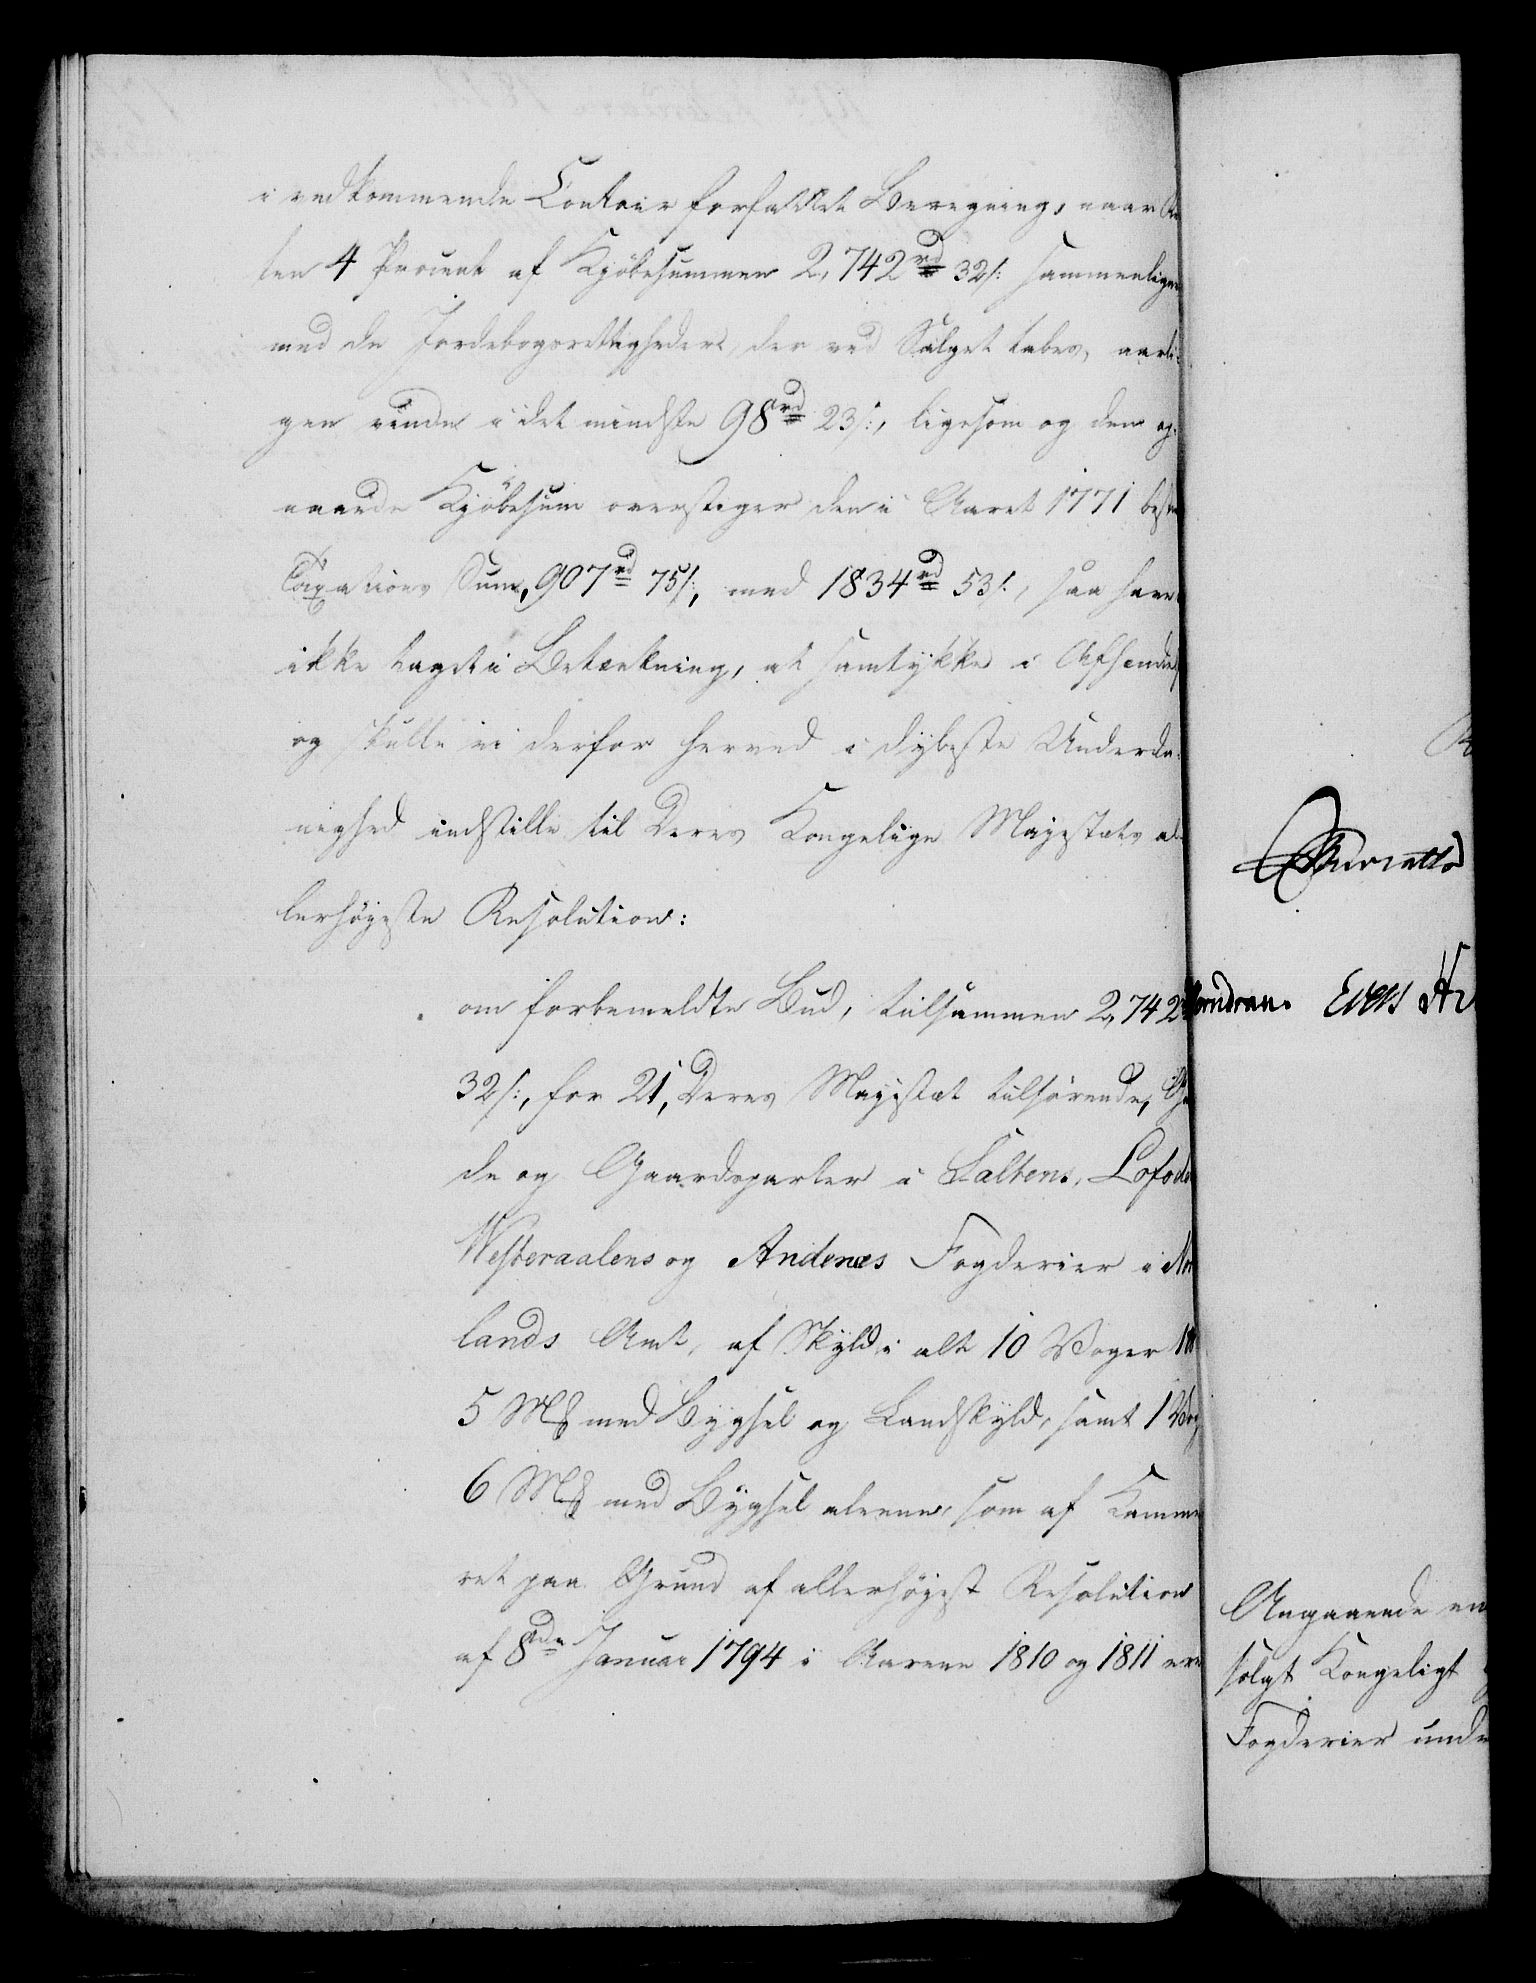 i vedkommende Contoir forfattet Beregning, naar
ten 4 Procent af Kjøbesummen 2,742 rd 32 s: sammenligne
med de Jordebogsrettigheder, der ved Salget tabes, aarli-
gen vinder i det mindste 98 rd 23 s:, ligesom og den op-
naaede Kjøbesum overstiger den i Aaret 1771
Taxations Sum, 907 rd 75 s:, med 1834 rd 53 s:, saa have
ikke taget i Betænkning, at samtykke i Afhænde
og skulle vi derfor herved i dybeste Underda-
nighed indstille til Deres Kongelige Majestæts al-
lerhøjeste Resolution:
om forbemeldte Bud, tilsammen 2,742
32 s:, for 21, Deres Majestæt tilhørende, Ga
de og Gaardsparter i Saltens, Lofode
Westeraalens og Andenæs Fogderier i No
lands Amt, af Skyld i alt 10 Voger
5 Mk med Bygsel og Landskyld, samt 1 Vog
6 Mk med Bygsel alene, som af Kamme
ret paa Grund af allerhøjest Resolution
af 8de Januar 1794 i Aarene 1810 og 1811 ere
Angaaende en
solgt Kongeligt
Fogderier unde